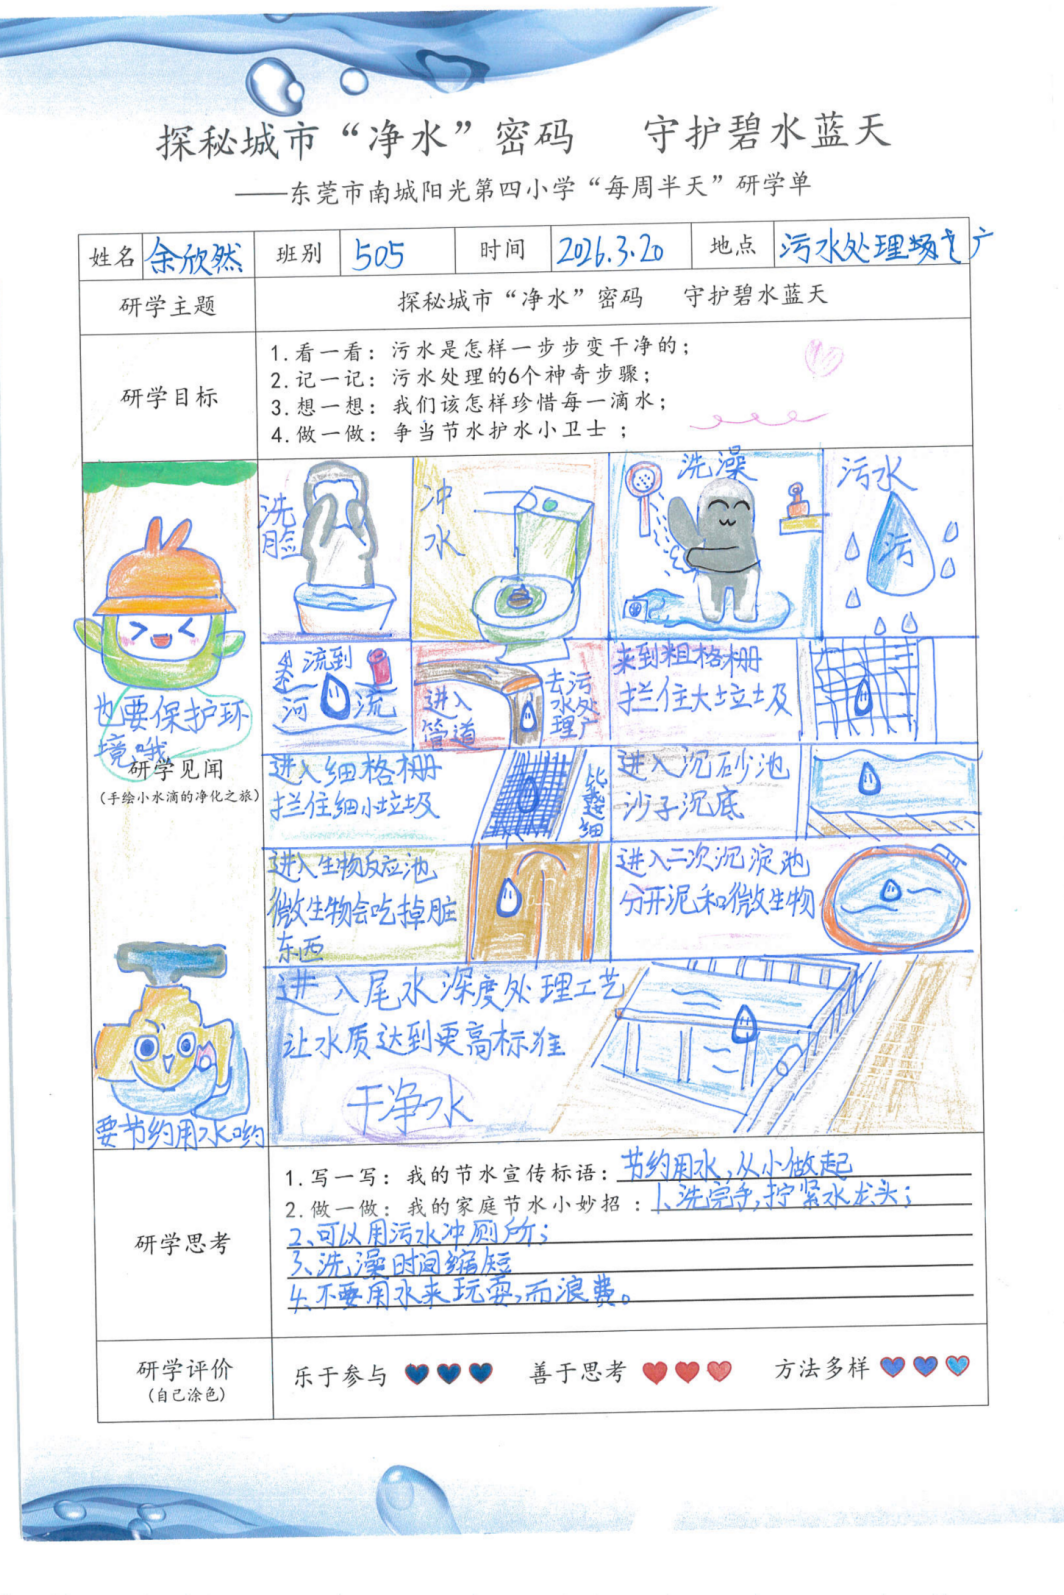 探秘城市“净水”密码 守护碧水蓝天
——东莞市南城阳光第四小学“每周半天”研学单
姓名 余欣然 班别 505 时间 2026.3.20 地点 污水处理厂
研学主题 探秘城市“净水”密码 守护碧水蓝天
研学目标
1.看一看：污水是怎样一步步变干净的；
2.记一记：污水处理的6个神奇步骤；
3.想一想：我们该怎样珍惜每一滴水；
4.做一做：争当节水护水小卫士；
也要保护环
境哦
研学见闻
（手绘小水滴的净化之旅）
要节约用水哟
洗
脸
冲
水
洗澡
污水
污
流到
河流
进入
管道
去污
水处
理厂
来到粗格栅
拦住大垃圾
进入细格栅
拦住细小垃圾
进入沉砂池
沙子沉底
进入生物反应池
微生物会吃掉脏
东西
进入二次沉淀池
分开泥和微生物
进入尾水深度处理工艺
让水质达到更高标准
干净水
研学思考
1.写一写：我的节水宣传标语：节约用水，从小做起
2.做一做：我的家庭节水小妙招：1、洗完手，拧紧水龙头；
2、可以用污水冲厕所；
3、洗澡时间缩短
4、不要用水来玩耍，而浪费。
研学评价
（自己涂色）
乐于参与 善于思考 方法多样